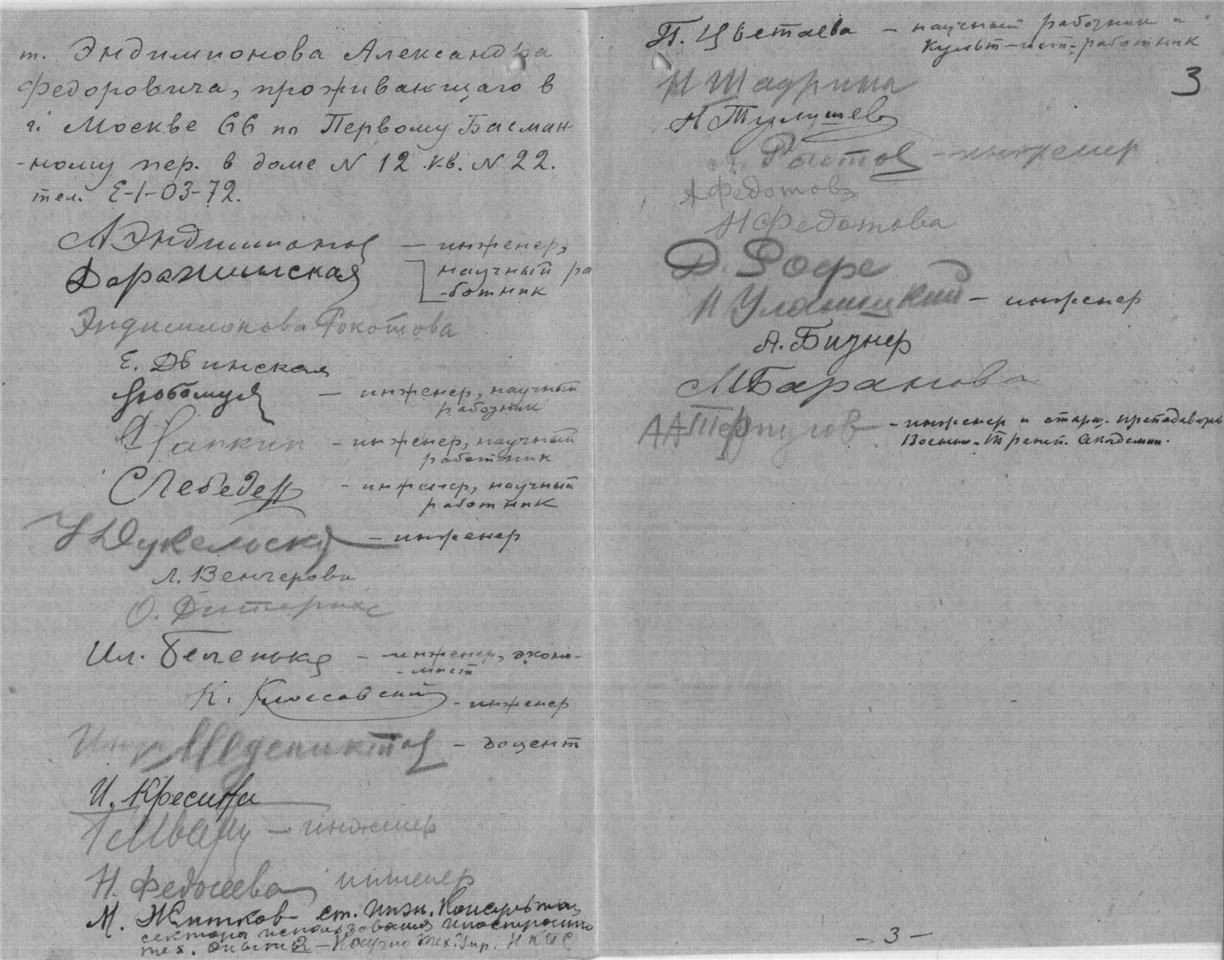 т. Эндимионова Александра
Федоровича, проживающего в
г. Москве 66 по Первому Басман-
-ному пер. в доме N 12 кв. N 22.
тел. Е-1-03-72.
А Эндимионов — инженер,
научный ра
-ботник
Эндимионова Рокотова
Е. Двинская
— инженер, научный
работник
— инженер, научный
работник
С Лебедев — инженер, научный
работник
— инженер
Л. Венчерова
О. Дитерихс
Ил. Беленький — инженер, эконо-
-мист
К. Клоссовский — инженер
— доцент
И. Кресина
— инженер
Н. Федосеева инженер
М. Житков ст. инж. Консультац.
сектора использования иностранного
тех. опыта — Научно Тех. Упр.
П. Цветаева — научный работник и
культ-ист-работник
3
Н Шадрина
Н Тулушев
Ростов — инженер
А Федотова
Н Федотова
Д. Рофе
Н Улашицкий — инженер
А. Бизнер
М Баранова
АА Терпугов — инженер и старш. преподаватель
Военно. Трансп. Академии.
- 3 -